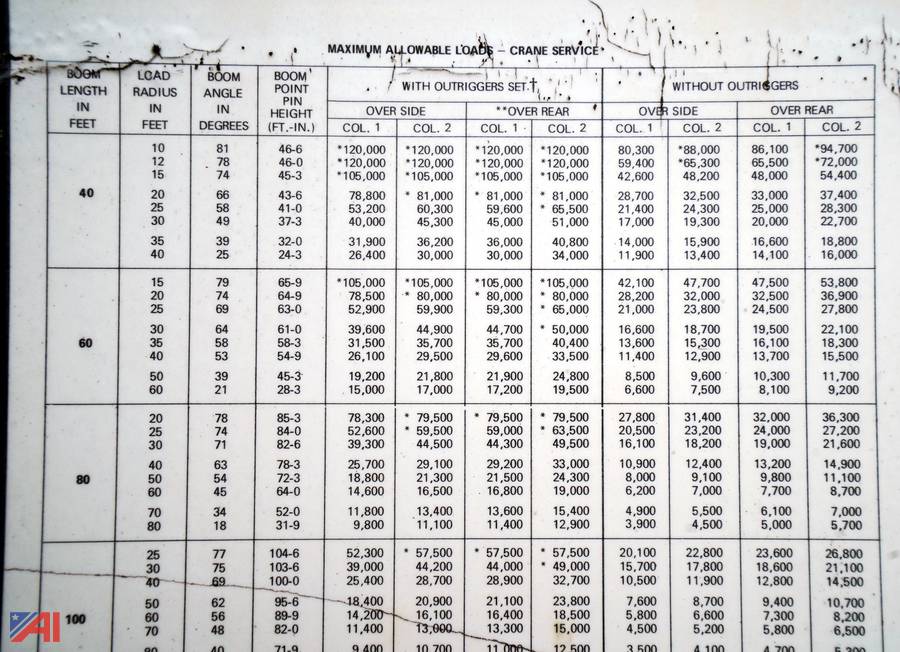 MAXIMUM ALLOWABLE LOADS – CRANE SERVICE
BOOM LENGTH IN FEET | LOAD RADIUS IN FEET | BOOM ANGLE IN DEGREES | BOOM POINT PIN HEIGHT (FT.-IN.) | WITH OUTRIGGERS SET.† | WITHOUT OUTRIGGERS
OVER SIDE | **OVER REAR | OVER SIDE | OVER REAR
COL. 1 | COL. 2 | COL. 1 | COL. 2 | COL. 1 | COL. 2 | COL. 1 | COL. 2
40
10 81 46-6 *120,000 *120,000 *120,000 *120,000 80,300 *88,000 86,100 *94,700
12 78 46-0 *120,000 *120,000 *120,000 *120,000 59,400 *65,300 65,500 *72,000
15 74 45-3 *105,000 *105,000 *105,000 *105,000 42,600 48,200 48,000 54,400
20 66 43-6 78,800 * 81,000 * 81,000 * 81,000 28,700 32,500 33,000 37,400
25 58 41-0 53,200 60,300 59,600 * 65,500 21,400 24,300 25,000 28,300
30 49 37-3 40,000 45,300 45,000 51,000 17,000 19,300 20,000 22,700
35 39 32-0 31,900 36,200 36,000 40,800 14,000 15,900 16,600 18,800
40 25 24-3 26,400 30,000 30,000 34,000 11,900 13,400 14,100 16,000
60
15 79 65-9 *105,000 *105,000 *105,000 *105,000 42,100 47,700 47,500 53,800
20 74 64-9 78,500 * 80,000 * 80,000 * 80,000 28,200 32,000 32,500 36,900
25 69 63-0 52,900 59,900 59,300 * 65,000 21,000 23,800 24,500 27,800
30 64 61-0 39,600 44,900 44,700 * 50,000 16,600 18,700 19,500 22,100
35 58 58-3 31,500 35,700 35,700 40,400 13,600 15,300 16,100 18,300
40 53 54-9 26,100 29,500 29,600 33,500 11,400 12,900 13,700 15,500
50 39 45-3 19,200 21,800 21,900 24,800 8,500 9,600 10,300 11,700
60 21 28-3 15,000 17,000 17,200 19,500 6,600 7,500 8,100 9,200
80
20 78 85-3 78,300 * 79,500 * 79,500 * 79,500 27,800 31,400 32,000 36,300
25 74 84-0 52,600 * 59,500 * 59,000 * 63,500 20,500 23,200 24,000 27,200
30 71 82-6 39,300 44,500 44,300 49,500 16,100 18,200 19,000 21,600
40 63 78-3 25,700 29,100 29,200 33,000 10,900 12,400 13,200 14,900
50 54 72-3 18,800 21,300 21,500 24,300 8,000 9,100 9,800 11,100
60 45 64-0 14,600 16,500 16,800 19,000 6,200 7,000 7,700 8,700
70 34 52-0 11,800 13,400 13,600 15,400 4,900 5,500 6,100 7,000
80 18 31-9 9,800 11,100 11,400 12,900 3,900 4,500 5,000 5,700
100
25 77 104-6 52,300 * 57,500 * 57,500 * 57,500 20,100 22,800 23,600 26,800
30 75 103-6 39,000 44,200 44,000 * 49,000 15,700 17,800 18,600 21,100
40 69 100-0 25,400 28,700 28,900 32,700 10,500 11,900 12,800 14,500
50 62 95-6 18,400 20,900 21,100 23,800 7,600 8,700 9,400 10,700
60 56 89-9 14,200 16,100 16,400 18,500 5,800 6,600 7,300 8,200
70 48 82-0 11,400 13,000 13,300 15,000 4,500 5,200 5,800 6,500
40 71-9 9,400 10,700 11,000 12,500 3,500 4,100 4,700
AI